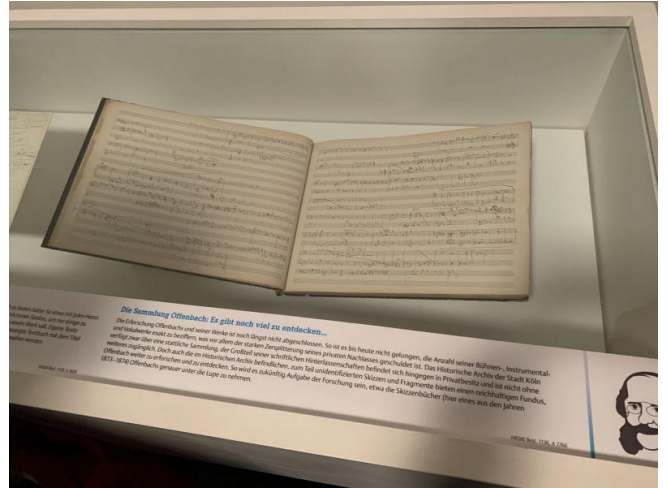 Die Sammlung Offenbach: Es gibt noch viel zu entdecken...
Die Erforschung Offenbachs und seiner Werke ist noch längst nicht abgeschlossen. So ist es bis heute nicht gelungen, die Anzahl seiner Bühnen-, Instrumental-
und Vokalwerke exakt zu beziffern, was vor allem der starken Zersplitterung seines privaten Nachlasses geschuldet ist. Das Historische Archiv der Stadt Köln
verfügt zwar über eine stattliche Sammlung, der Großteil seiner schriftlichen Hinterlassenschaften befindet sich hingegen in Privatbesitz und ist nicht ohne
weiteres zugänglich. Doch auch die im Historischen Archiv befindlichen, zum Teil unidentifizierten Skizzen und Fragmente bieten einen reichhaltigen Fundus,
Offenbach weiter zu erforschen und zu entdecken. So wird es zukünftig Aufgabe der Forschung sein, etwa die Skizzenbücher (hier eines aus den Jahren
1873-1874) Offenbachs genauer unter die Lupe zu nehmen.
HAStK Best. 1136, A 1766